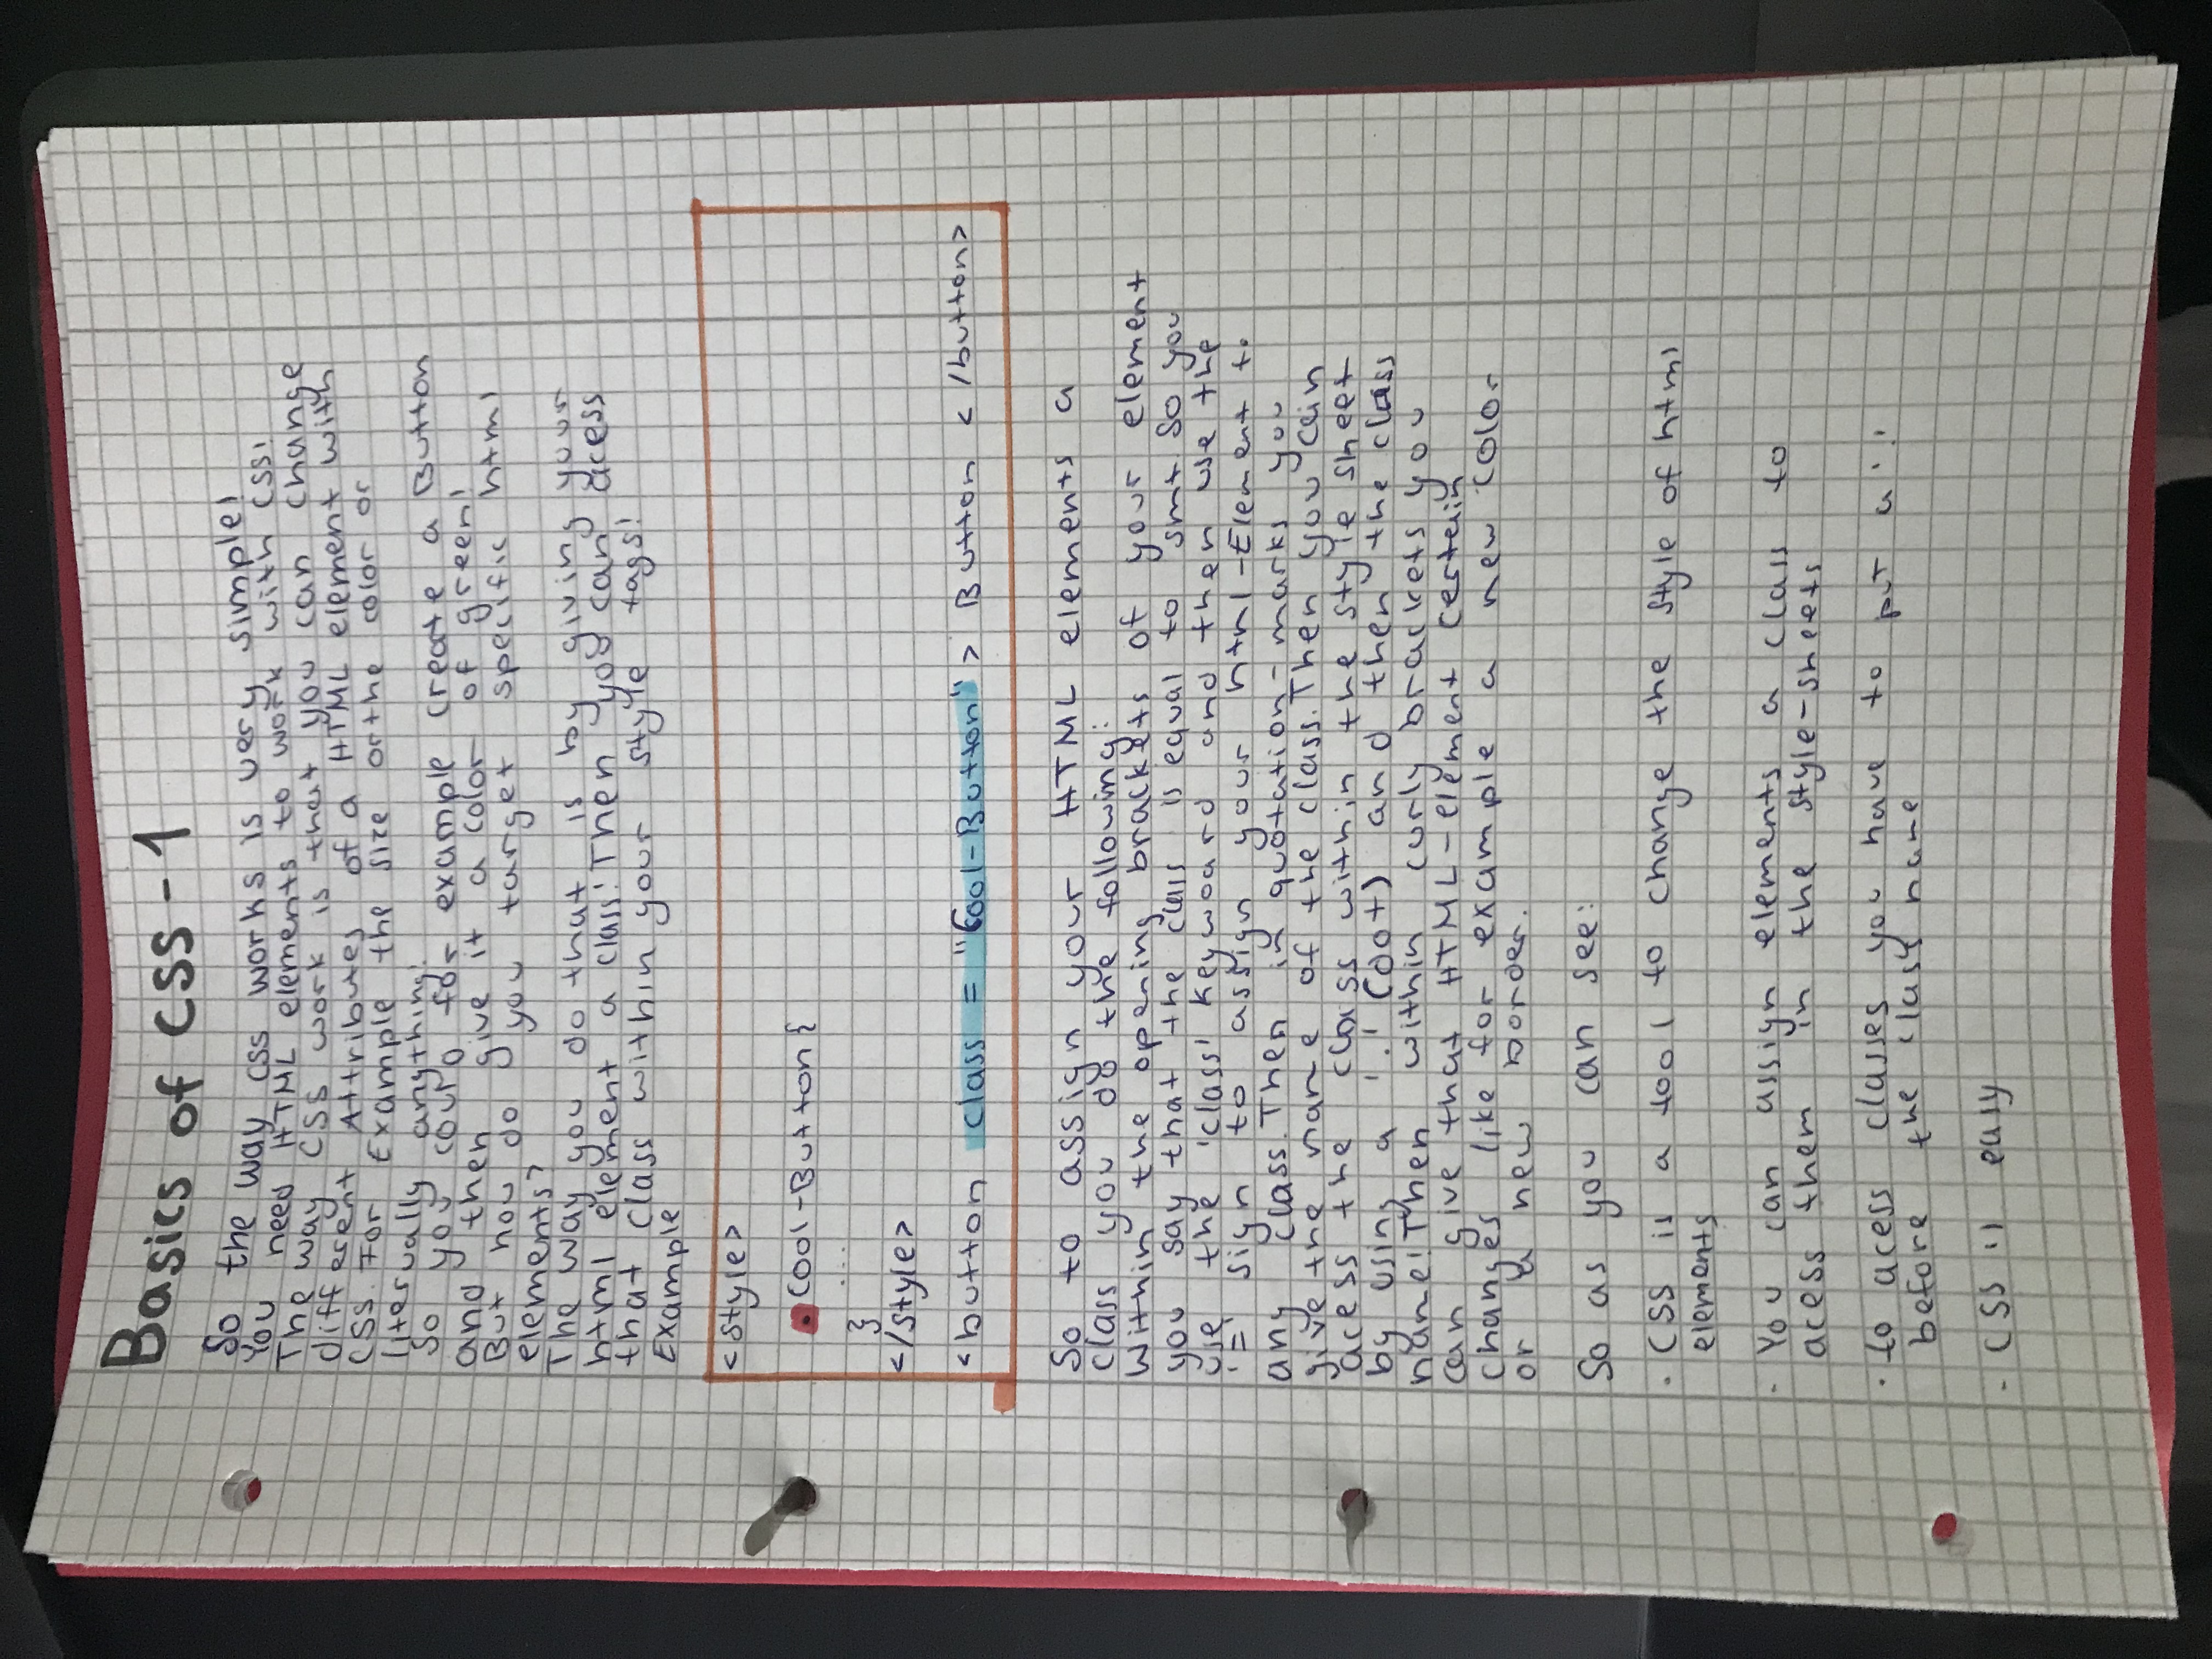 Basics of CSS - 1
So the way css works is very simple!
You need HTML elements to work with CSS!
The way CSS work is that you can change
different Attributes of a HTML element with
CSS. For Example the size or the color or
litterually anything!
So you could for example create a Button
and then give it a color of green!
But how do you target specific html
elements?
The way you do that is by giving your
html element a class! Then you can acess
that class within your style tags!
Example
<style>
.Cool-Button{
...
}
</style>
<button class = "Cool-Button"> Button </button>
So to assign your HTML elements a
class you do the following:
Within the opening brackets of your element
you say that the class is equal to smt. So you
use the 'class' keywoard and then use the
'=' sign to assign your html-Element to
any class. Then in quotation-marks you
give the name of the class. Then you can
acess the class within the style sheet
by using a '.' (dot) and then the class
name! Then within curly brackets you
can give that HTML-element certain
changes like for example a new color
or a new border.
So as you can see:
· CSS is a tool to change the style of html
elements
- You can assign elements a class to
acess them in the style-sheets
· to acess classes you have to put a '.'
before the class name
- CSS is easy